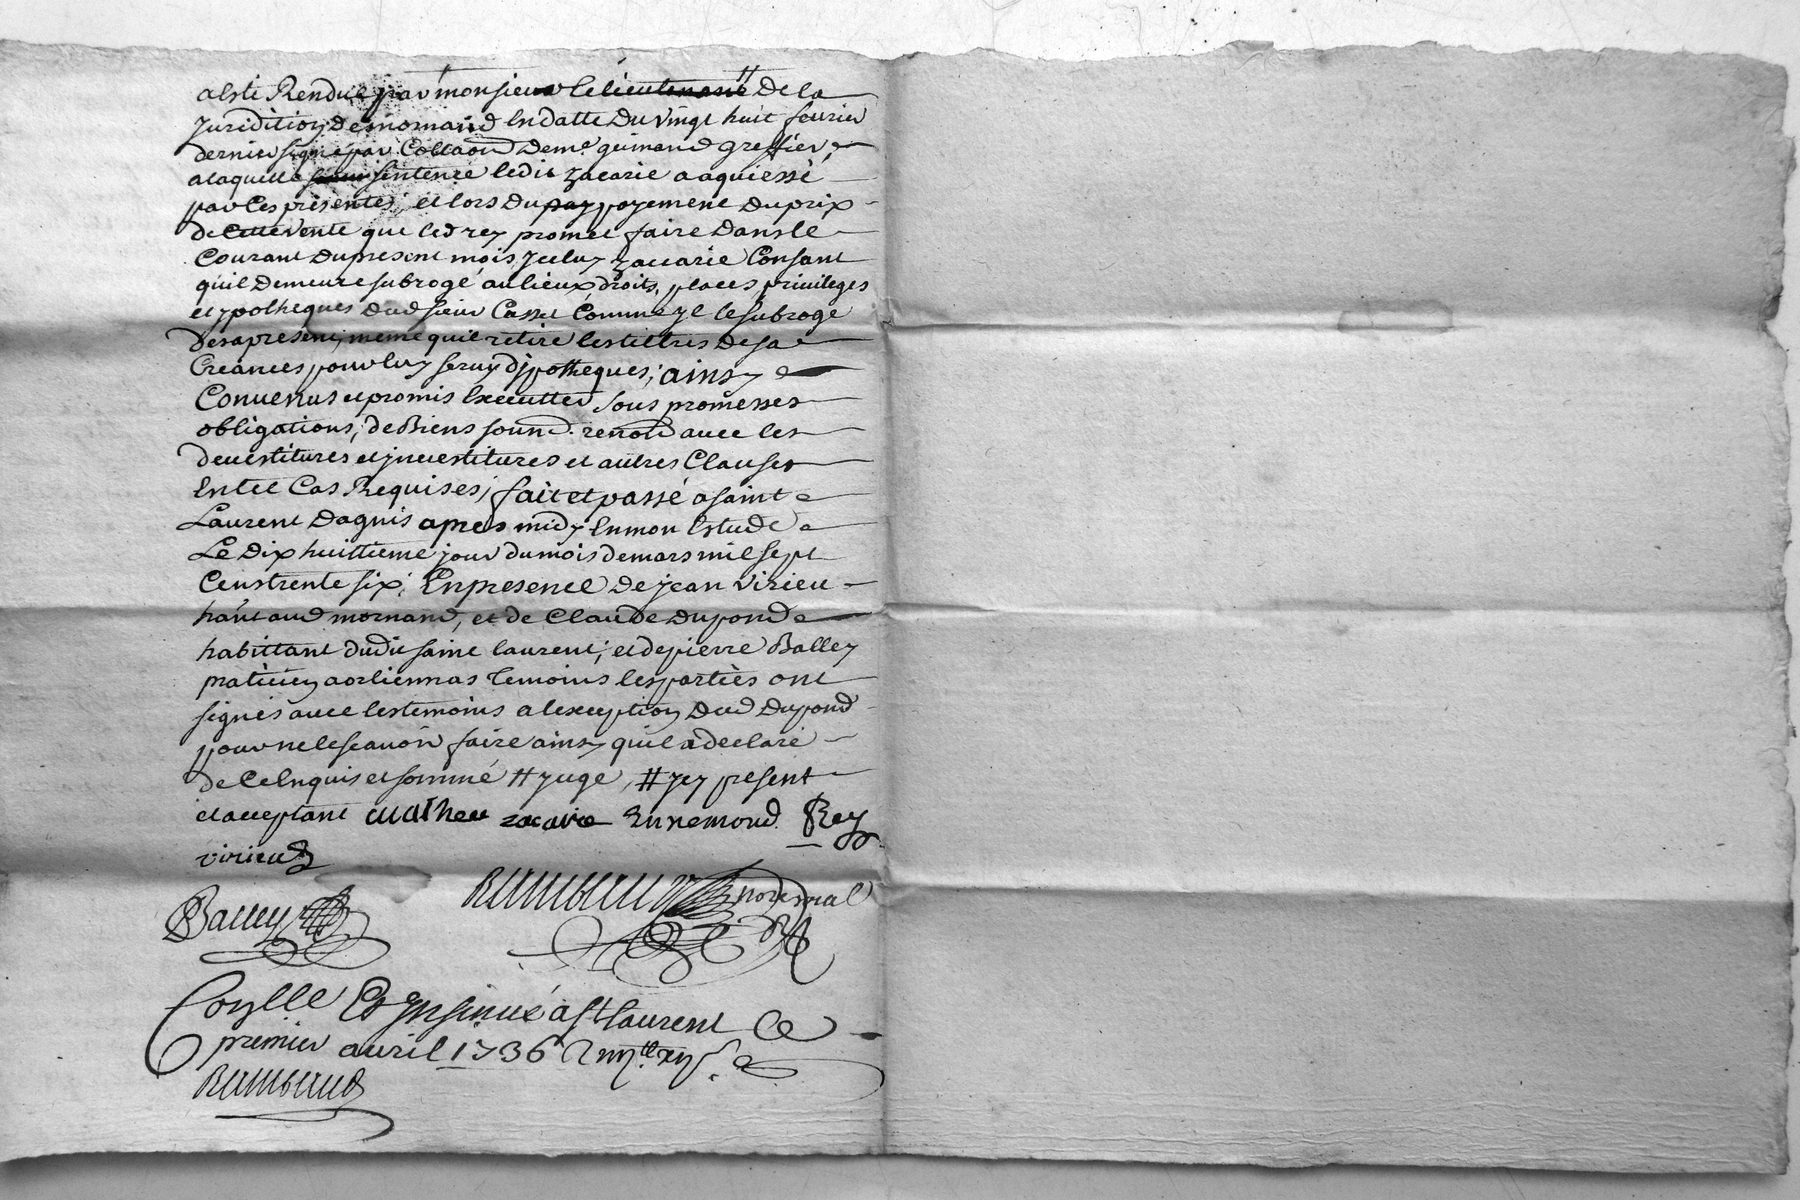 a esté Rendue par monsieur le lieutenant De la
Juridition De mornand En datte Du vingt huit feurier
dernier signé par Collaon De me guimand greffier
a laquelle sentence ledit zacarie a aquiessé
par Ces présentes, et lors Du payement Du prix
de Cette vente que led rey promet faire Dans le
Courant Du present mois Jceluy zacarie Consant
quil Demeure subrogé au lieux droits, places, priuileges
et ypotheques Dud sieur Casset Comme yl le subroge
Des a present, meme quil retire les tiltres De sa
Creances pour luy seruir Dypotheques; ainsy
Conuenus et promis Executter sous promesses
obligations, de Biens soumd. renond auec les
deuestitures et jnuestitures et autres Clauses
En tel Cas Requises; fait et passé a saint
Laurent Dagnis apres midy En mon Estude
Le Dix huittieme jour du mois de mars mil sept
Cens trente six; En presence De jean virieu
hant aud mornand, et de Claude Dupond
habittant dudit saint laurent; et de pierre Balley
praticien a orliennas temoins les parties ont
signés auec les temoins a lexception Dud Dupond
pour ne le scauoir faire ainsy quil a declaré
de Ce Enquis et sommé # juge, # jcy present
et acceptant Mathieu zacarie Ennemond Rey
virieu
Balley
Rambaud no.re royal
Con.lle Et Jnsinué a St laurent Ce
premier auril 1736
Rambaud